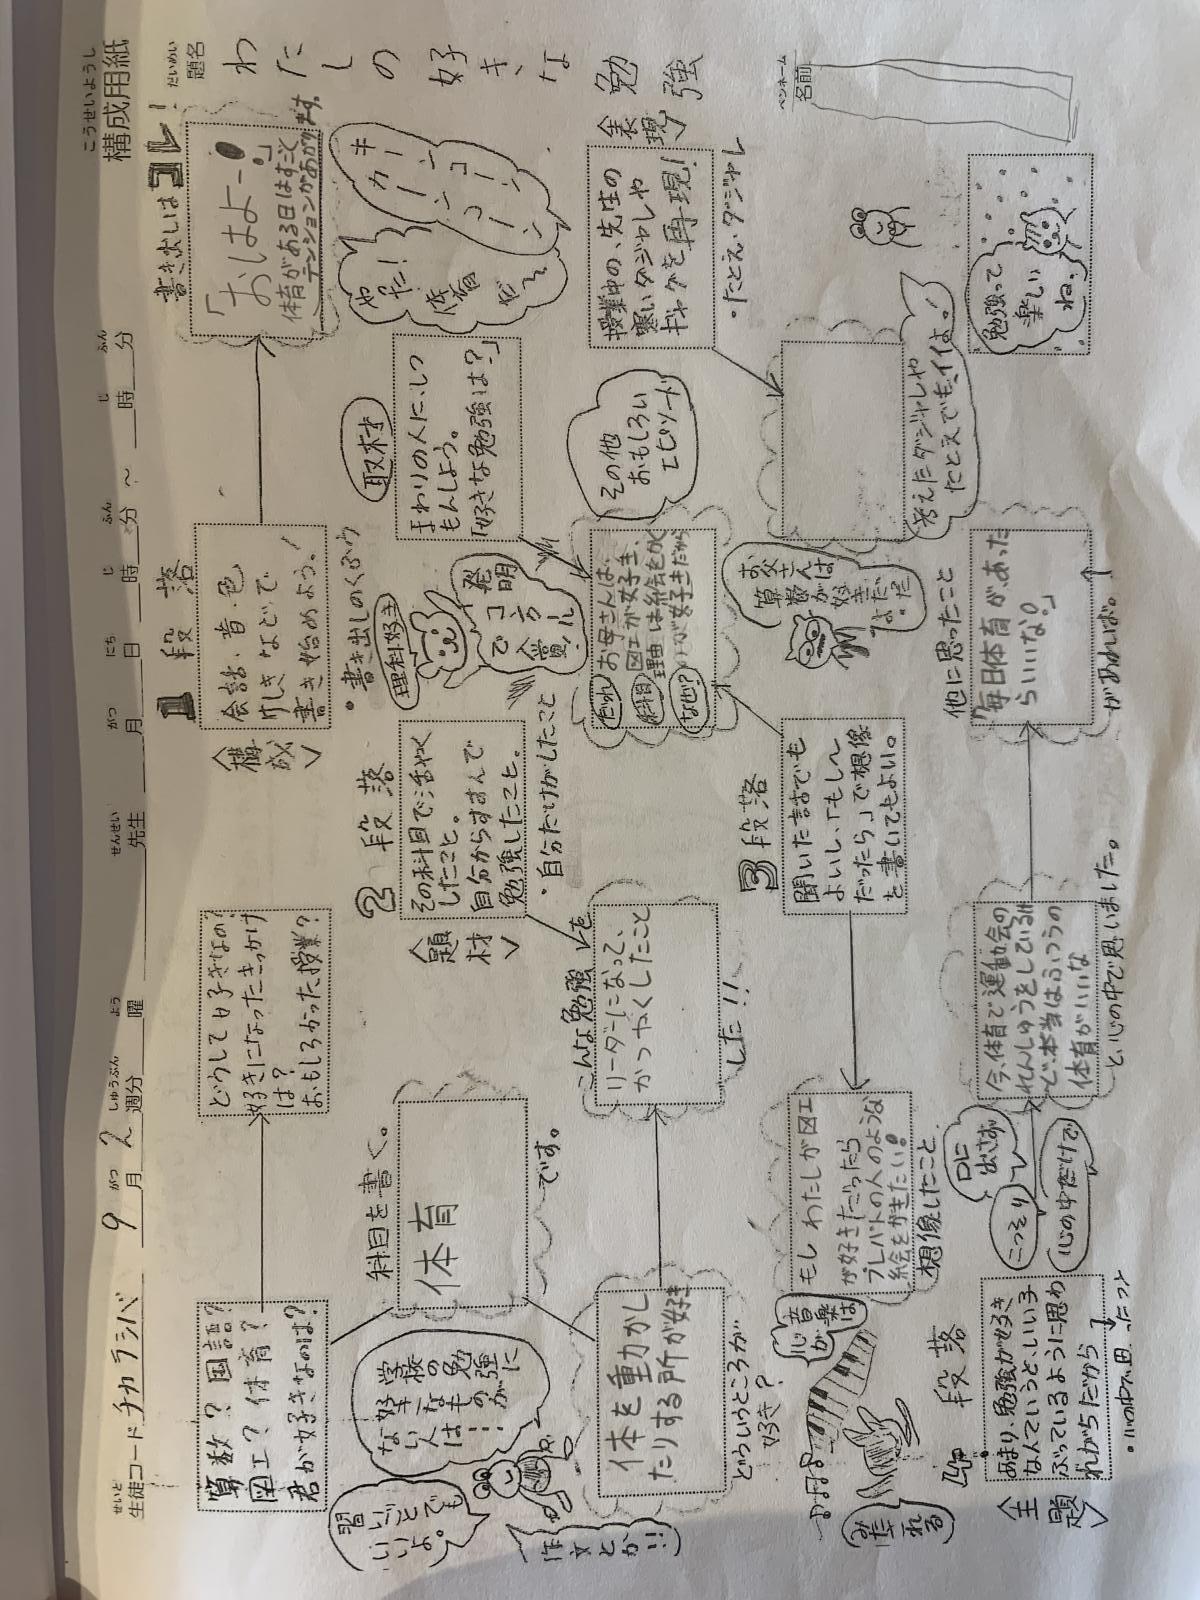 こうせいようし
構成用紙
せいと
生徒コード チカラシバ
9 がつ
月
2 しゅうぶん
週分
よう
曜
せんせい
先生
がつ
月
にち
日
じ
時
ふん
分
～
じ
時
ふん
分
だいめい
題名
わたしの好きな勉強
ペンネーム
名前
1段落
〈構成〉
算数？国語？
図工？体育？
君が好きなのは？
どうして好きなの？
好きになったきっかけ
は？
おもしろかった授業？
会話・音・色
けしきなどで
書き始めよう！
・書き出しのくふう
書き出しはコレ！
「おはよー！」
体育がある日はすごく
テンションがあがります。
キーンコーンカーン
やった！
体育
だ～
学校の勉強に
好きなものが
ない人は…
習いごとでも
いいよ。
作文とか！！
科目を書く。
体育
です。
2段落
〈題材〉
その科目で活やく
したこと。
自分からすすんで
勉強したこと。
・自分だけがしたこと
理科好き
発明
コンクール
で
金賞！
取材
まわりの人にしつ
もんしよう。
「好きな勉強は？」
体を動かし
たりする所が好き
どういうところが
好き？
こんな勉強を
リーダーになって、
かつやくしたこと
した！！
だれ
科目
なぜ？
お母さんは、
図工が好き、
理由は絵をかく
のが好きだから
その他
おもしろい
エピソード
〈表現〉
授業中の、先生の
寒いダジャレや
ギャグを再現！
・たとえ・ダジャレ
3段落
聞いた話でも
よいし、「もし～
だったら」で想像
を書いてもよい。
お父さんは
算数が
好きだ
よ。
もしわたしが図工
が好きだったら
プレバトの人のような
絵をかきたい！
想像したこと
音楽は
心が
みだれる
考えたダジャレや
たとえでも、イイよ！
4段落
〈主題〉
あまり、勉強が好き
なんていうと、いい子
ぶっているように思わ
れがちだから
口に
出さず
こっそり
心の中だけで
今、体育で運動会の
れんしゅうをしているけ
ど、本当はふつうの
体育がいいな
と、心の中で思いました。
他に思ったこと
「毎日体育が、あった
らいいな。」
があれば。
勉強って
楽しい
ね。